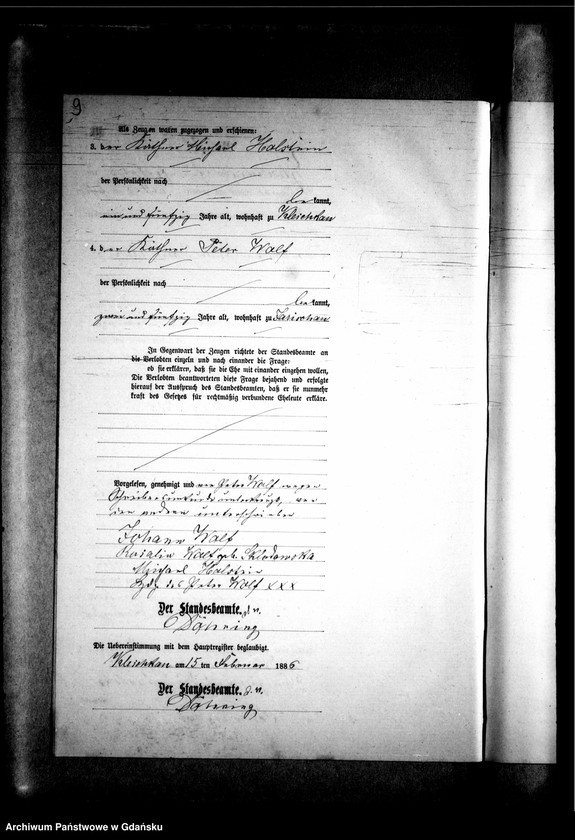 9
Als Zeugen waren zugezogen und erschienen:
3. der Käthner Michael Halstein
der Persönlichkeit nach
bekannt,
ein und fünfzig Jahre alt, wohnhaft zu Kleschkau
4. der Käthner Peter Walf
der Persönlichkeit nach
bekannt,
zwei und fünfzig Jahre alt, wohnhaft zu
In Gegenwart der Zeugen richtete der Standesbeamte an
die Verlobten einzeln und nach einander die Frage:
ob sie erklären, daß sie die Ehe mit einander eingehen wollen,
Die Verlobten beantworteten diese Frage bejahend und erfolgte
hierauf der Ausspruch des Standesbeamten, daß er sie nunmehr
kraft des Gesetzes für rechtmäßig verbundene Eheleute erkläre.
Vorgelesen, genehmigt und von Peter Walf wegen
Schreibensunkunde unterkreuzt, von
den andern unterschrieben
Johann Walf
Rosalia Walf geb. Sklodowska
Michael Halstein
Hdz. des Peter Walf xxx
Der Standesbeamte.
Döhring
Die Uebereinstimmung mit dem Hauptregister beglaubigt.
Kleschkau am 15 ten Februar 1886
Der Standesbeamte.
Döhring
Archiwum Państwowe w Gdańsku